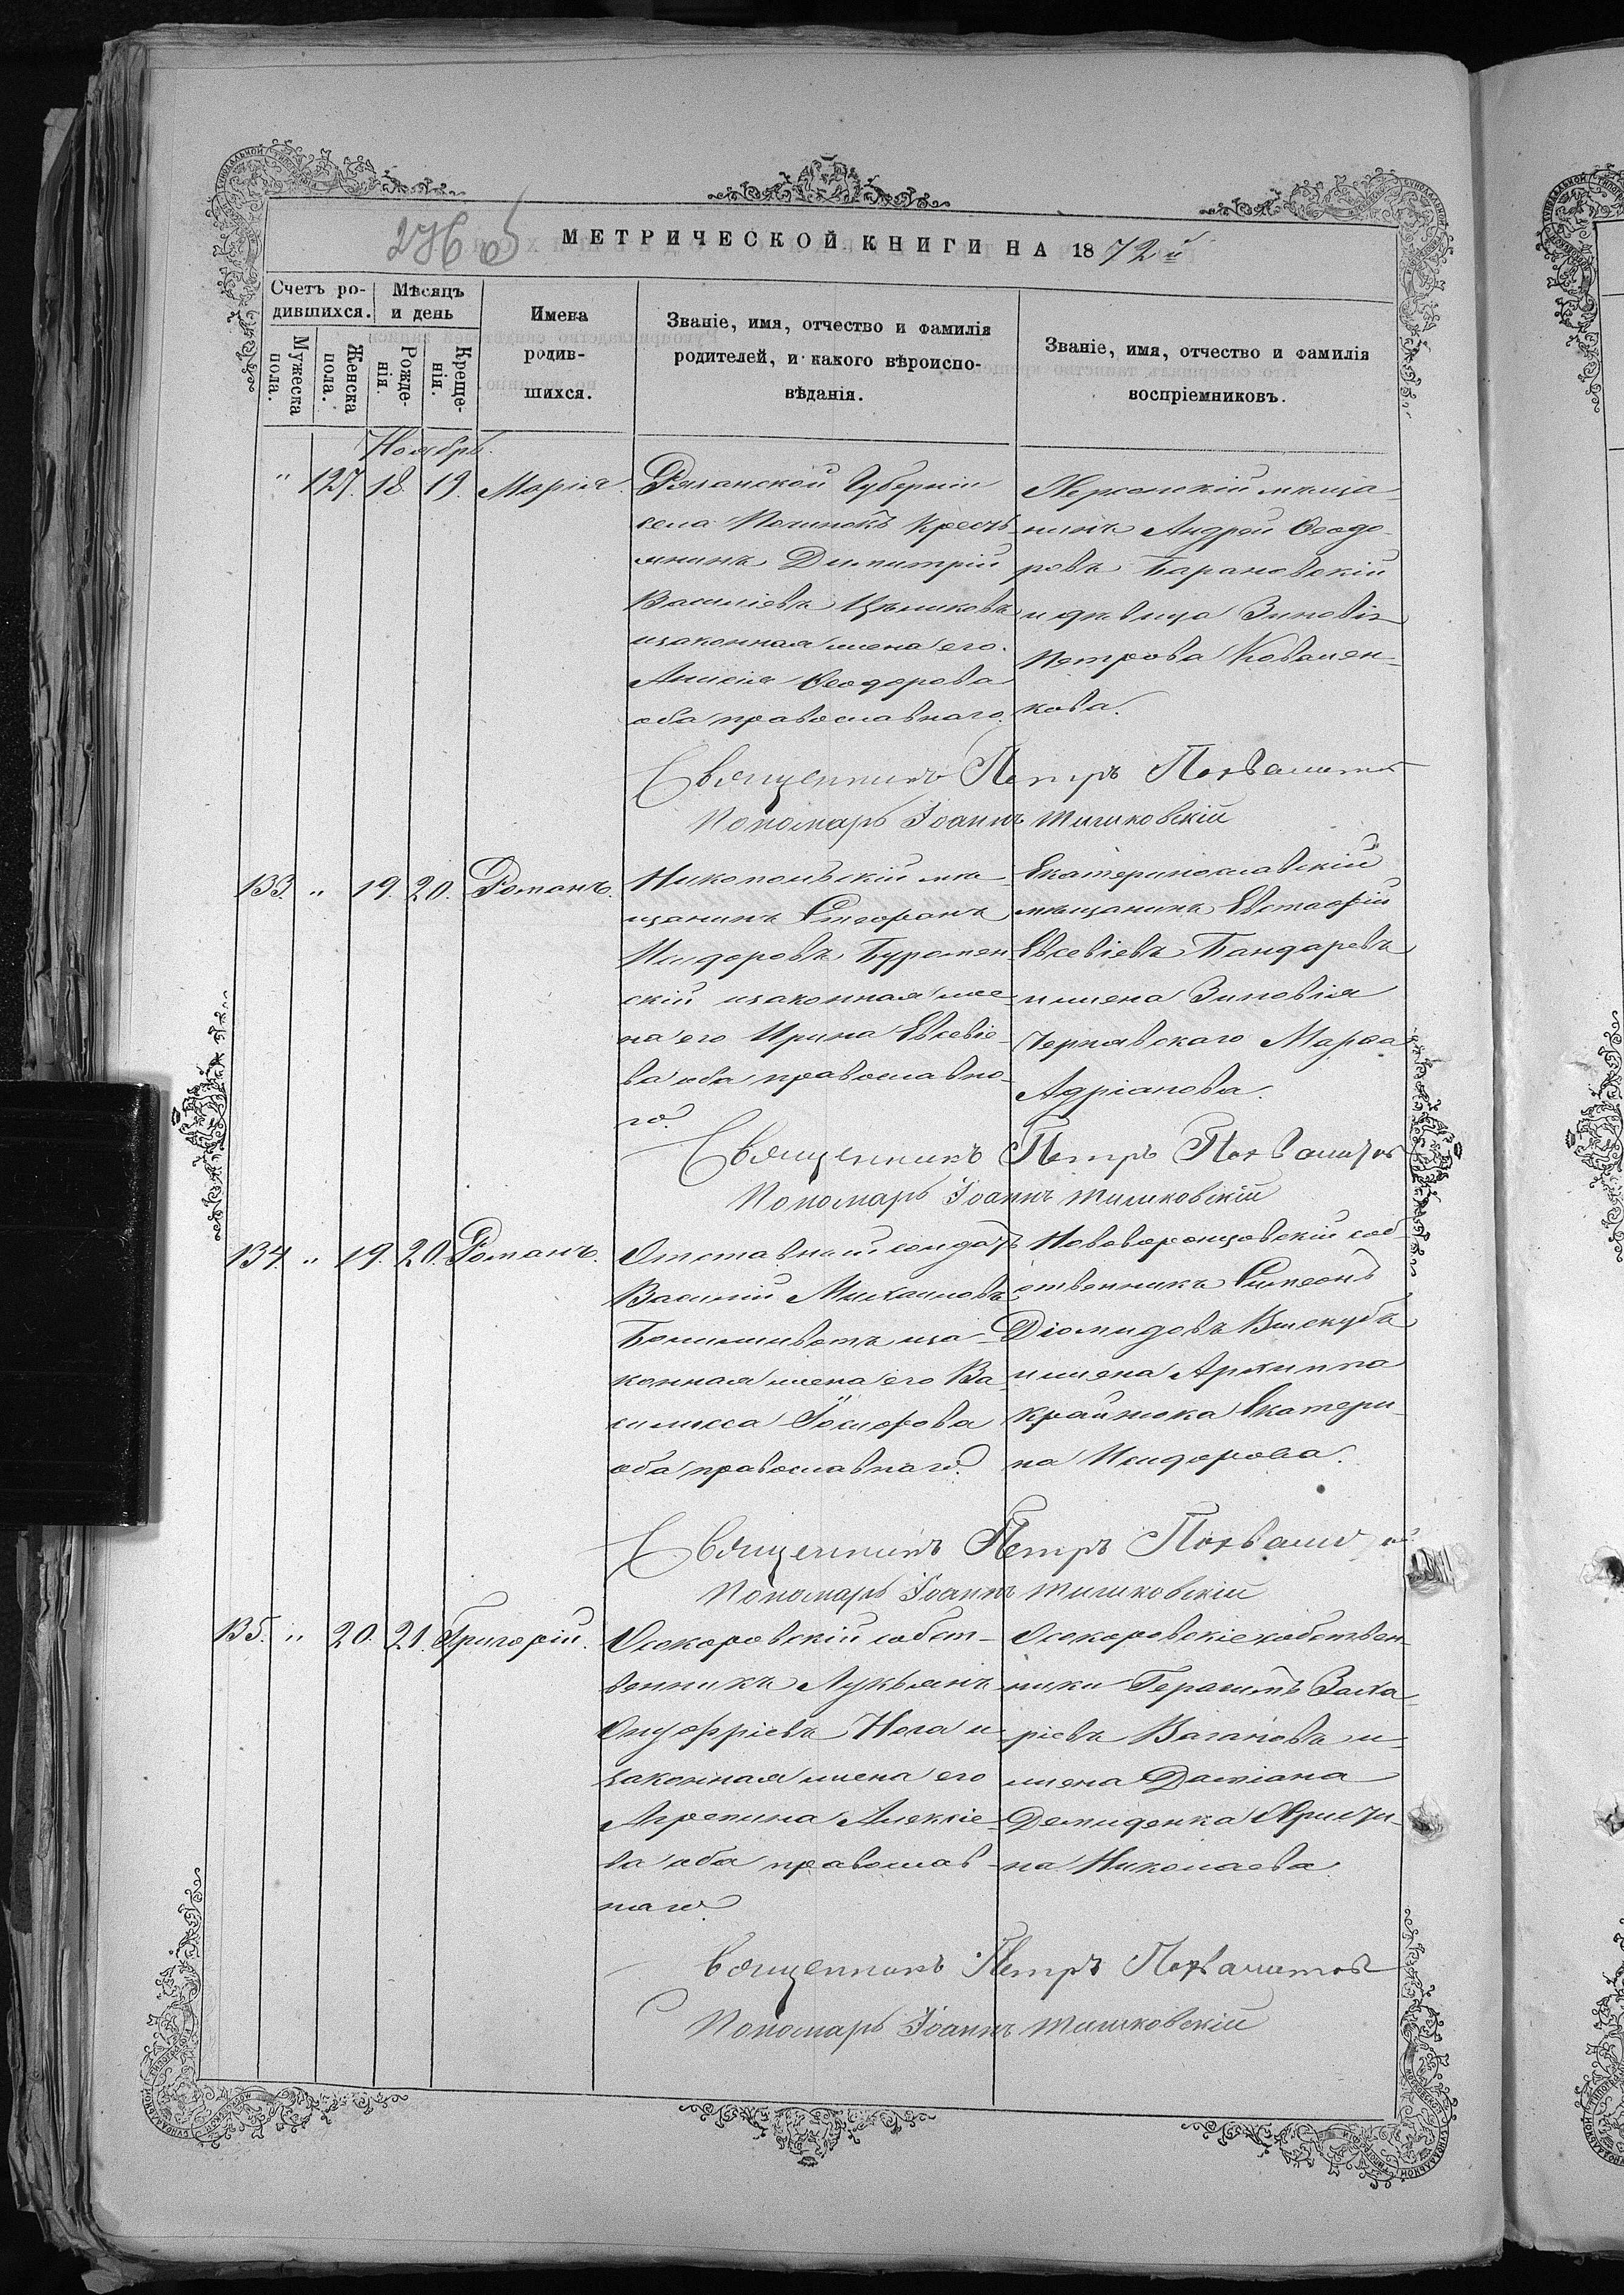 276 об
МЕТРИЧЕСКОЙ КНИГИ НА 1872й
Счетъ ро-
дившихся.
Мужеска
пола.
Женска
пола.
Мѣсяцъ
и день
Рожде-
нія.
Креще-
нія.
Имена
родив-
шихся.
Званіе, имя, отчество и фамилія
родителей, и какого вѣроиспо-
вѣданія.
Званіе, имя, отчество и фамилія
воспріемниковъ.
Ноябрь.
" 127. 18. 19. Марія.
Рязанской Губерніи
села Починокъ Кресть-
янинъ Димитрій
Василіевъ
и законная жена его
Анисія Ѳеодорова
оба православнаго.
Херсонскій мѣща-
нинъ Андрей Ѳеодо-
ровъ Барановскій
и дѣвица Зиновія
Петрова Ковален-
кова.
Священникъ Петръ Похвалитовъ
Пономарь Іоаннъ Мишковскій
133. " 19. 20. Романъ.
Никопольскій мѣ-
щанинъ Стефанъ
Исидоровъ Буромен-
скій и законная же-
на его Ирина Евсевіе-
ва оба православна-
го.
Екатеринославскій
мѣщанинъ Евстафій
Евсевіевъ Бандаревъ
и жена Зиновія
Чернявскаго Марѳа
Адріанова.
Священникъ Петръ Похвалитовъ
Пономарь Іоаннъ Мишковскій
134. " 19. 20. Романъ.
Отставный солдатъ
Василій Михаиловъ
и за-
конная жена его Ва-
силисса Іосифова
оба православнаго.
Нововоронцовскій соб-
ственникъ Симеонъ
Діомидовъ
и жена Архиппа
Крайнюка Екатери-
на Исидорова.
Священникъ Петръ
Пономарь Іоаннъ Мишковскій
135. " 20. 21. Григорій.
Осокоровскій собст-
венникъ Лукьянъ
Онуфріевъ Нога и
законная жена его
Агрепина Алексіе-
ва оба православ-
наго.
Осокоровскіе собствен-
ники Герасимъ Заха-
ріевъ Вагановъ и
жена Даміана
Демиденка Христи-
на Николаева.
Священникъ Петръ Похвалитовъ
Пономарь Іоаннъ Мишковскій